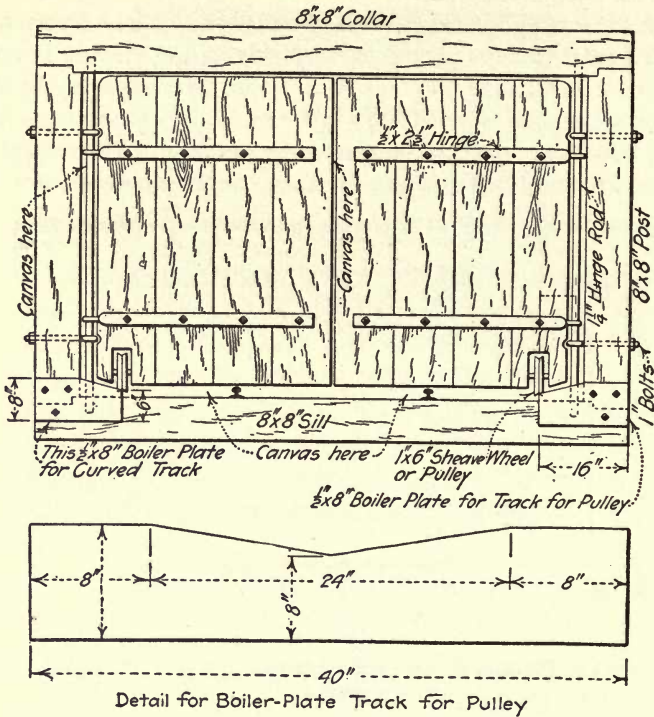 8"x8" Collar
½"x2½" Hinge
Canvas here
Canvas here
1¼" Hinge Rod
8"x8" Post
1" Bolts
8"
6"
8"x8" Sill
This ½"x8" Boiler Plate
for Curved Track
Canvas here
1"x6" Sheave Wheel
or Pulley
16"
½"x8" Boiler Plate for Track for Pulley
8"
8"
24"
8"
40"
Detail for Boiler-Plate Track for Pulley